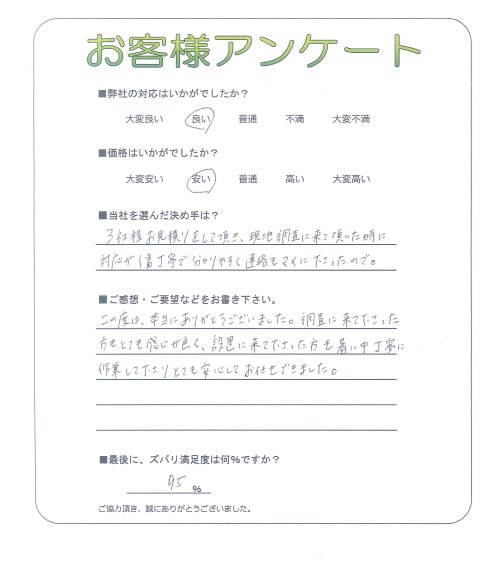 お客様アンケート
■弊社の対応はいかがでしたか？
大変良い 良い 普通 不満 大変不満
■価格はいかがでしたか？
大変安い 安い 普通 高い 大変高い
■当社を選んだ決め手は？
3社程お見積りをして頂き、現地調査に来て頂いた時に
対応が1番丁寧で分かりやすく連絡もマメに下さったので。
■ご感想・ご要望などをお書き下さい。
この度は、本当にありがとうございました。調査に来て下さった
方もとても感じが良く、設置に来て下さった方も暑い中丁寧に
作業して下さりとても安心してお任せできました。
■最後に、ズバリ満足度は何％ですか？
95 ％
ご協力頂き、誠にありがとうございました。